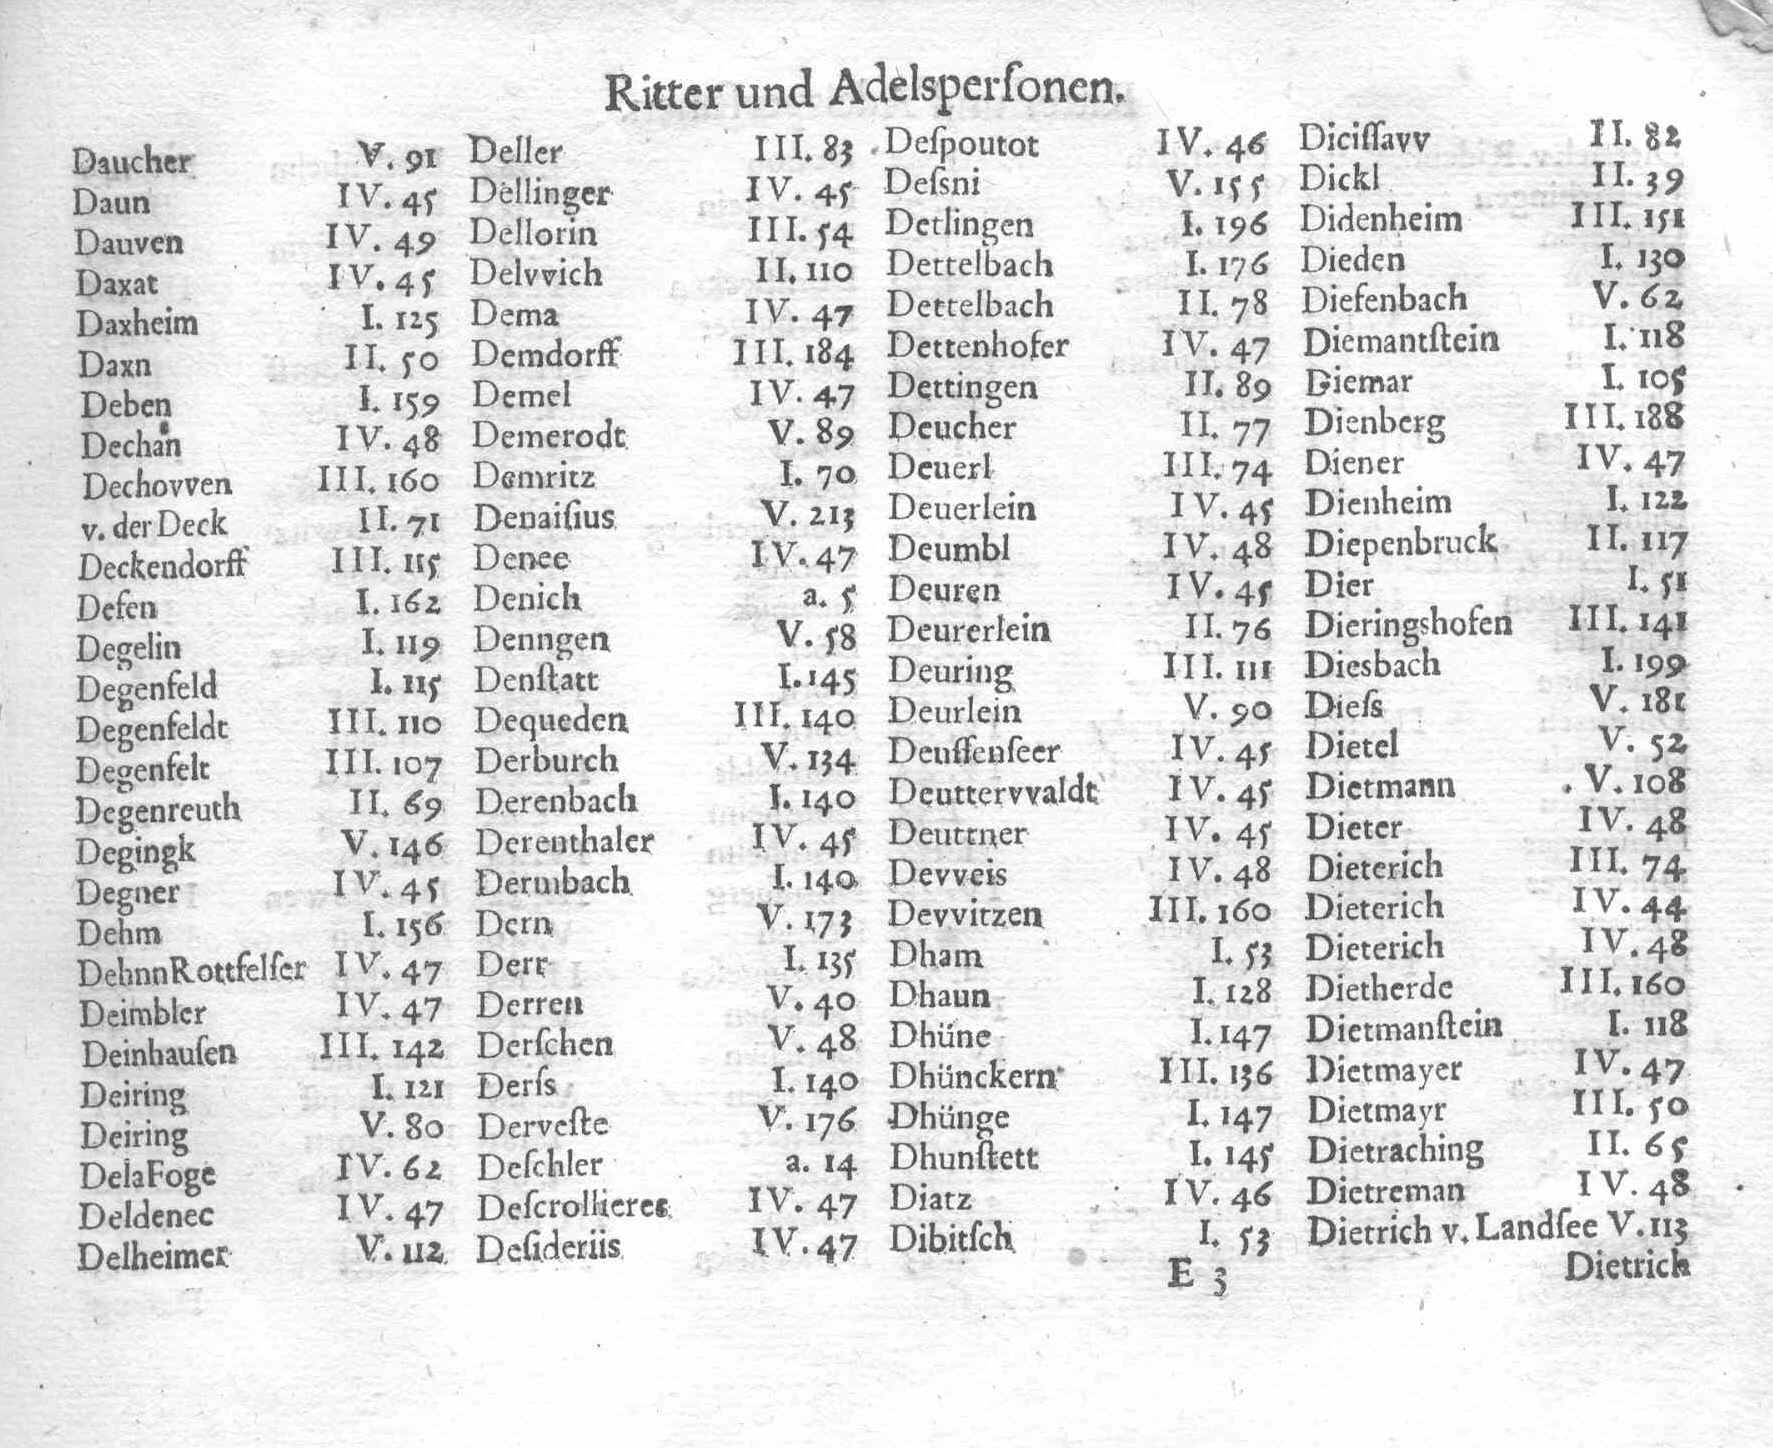 Ritter und Adelsperſonen.
Daucher V. 91
Daun IV. 45
Dauven IV. 49
Daxat IV. 45
Daxheim I. 125
Daxn II. 50
Deben I. 159
Dechan IV. 48
Dechovven III. 160
v. der Deck II. 71
Deckendorff III. 115
Defen I. 162
Degelin I. 119
Degenfeld I. 115
Degenfeldt III. 110
Degenfelt III. 107
Degenreuth II. 69
Degingk V. 146
Degner IV. 45
Dehm I. 156
DehnnRottfelſer IV. 47
Deimbler IV. 47
Deinhauſen III. 142
Deiring I. 121
Deiring V. 80
DelaFoge IV. 62
Deldenec IV. 47
Delheimer V. 112
Deller III. 83
Dellinger IV. 45
Dellorin III. 54
Delvvich II. 110
Dema IV. 47
Demdorff III. 184
Demel IV. 47
Demerodt V. 89
Demritz I. 70
Denaiſius V. 213
Denee IV. 47
Denich a. 5
Denngen V. 58
Denſtatt I. 145
Dequeden III. 140
Derburch V. 134
Derenbach I. 140
Derenthaler IV. 45
Dermbach I. 140
Dern V. 173
Derr I. 135
Derren V. 40
Derſchen V. 48
Derſs I. 140
Derveſte V. 176
Deſchler a. 14
Deſcrollieres IV. 47
Deſideriis IV. 47
Deſpoutot IV. 46
Deſsni V. 155
Detlingen I. 196
Dettelbach I. 176
Dettelbach II. 78
Dettenhofer IV. 47
Dettingen II. 89
Deucher II. 77
Deuerl III. 74
Deuerlein IV. 45
Deumbl IV. 48
Deuren IV. 45
Deurerlein II. 76
Deuring III. 111
Deurlein V. 90
Deuſſenſeer IV. 45
Deuttervvaldt IV. 45
Deuttner IV. 45
Devveis IV. 48
Devvitzen III. 160
Dham I. 53
Dhaun I. 128
Dhüne I. 147
Dhünckern III. 136
Dhünge I. 147
Dhunſtett I. 145
Diatz IV. 46
Dibitſch I. 53
Diciſſavv II. 82
Dickl II. 39
Didenheim III. 151
Dieden I. 130
Diefenbach V. 62
Diemantſtein I. 118
Diemar I. 105
Dienberg III. 188
Diener IV. 47
Dienheim I. 122
Diepenbruck II. 117
Dier I. 51
Dieringshofen III. 141
Diesbach I. 199
Dieſs V. 181
Dietel V. 52
Dietmann V. 108
Dieter IV. 48
Dieterich III. 74
Dieterich IV. 44
Dieterich IV. 48
Dietherde III. 160
Dietmanſtein I. 118
Dietmayer IV. 47
Dietmayr III. 50
Dietraching II. 65
Dietreman IV. 48
Dietrich v. Landſee V. 113
E 3
Dietrich